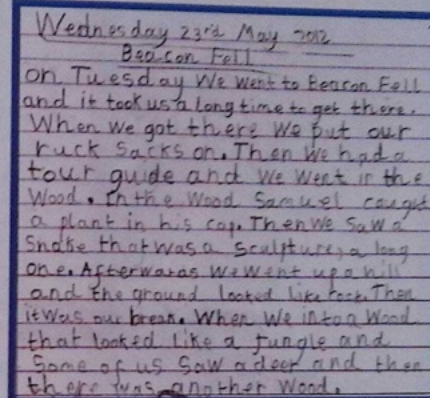 Wednesday 23rd May 2012
Beacon Fell
on Tuesday We went to Beacon Fell
and it took us a long time to get there.
When we got there we put our
ruck sacks on. Then we had a
tour guide and we went in the
Wood. In the wood Samuel caught
a plant in his cap. Then we saw a
Snake that was a sculpture, a long
one. Afterwards we went up a hill
and the ground looked like rock. Then
it was our break. When we into a wood
that looked like a jungle and
Some of us saw a deer and then
there was another wood.